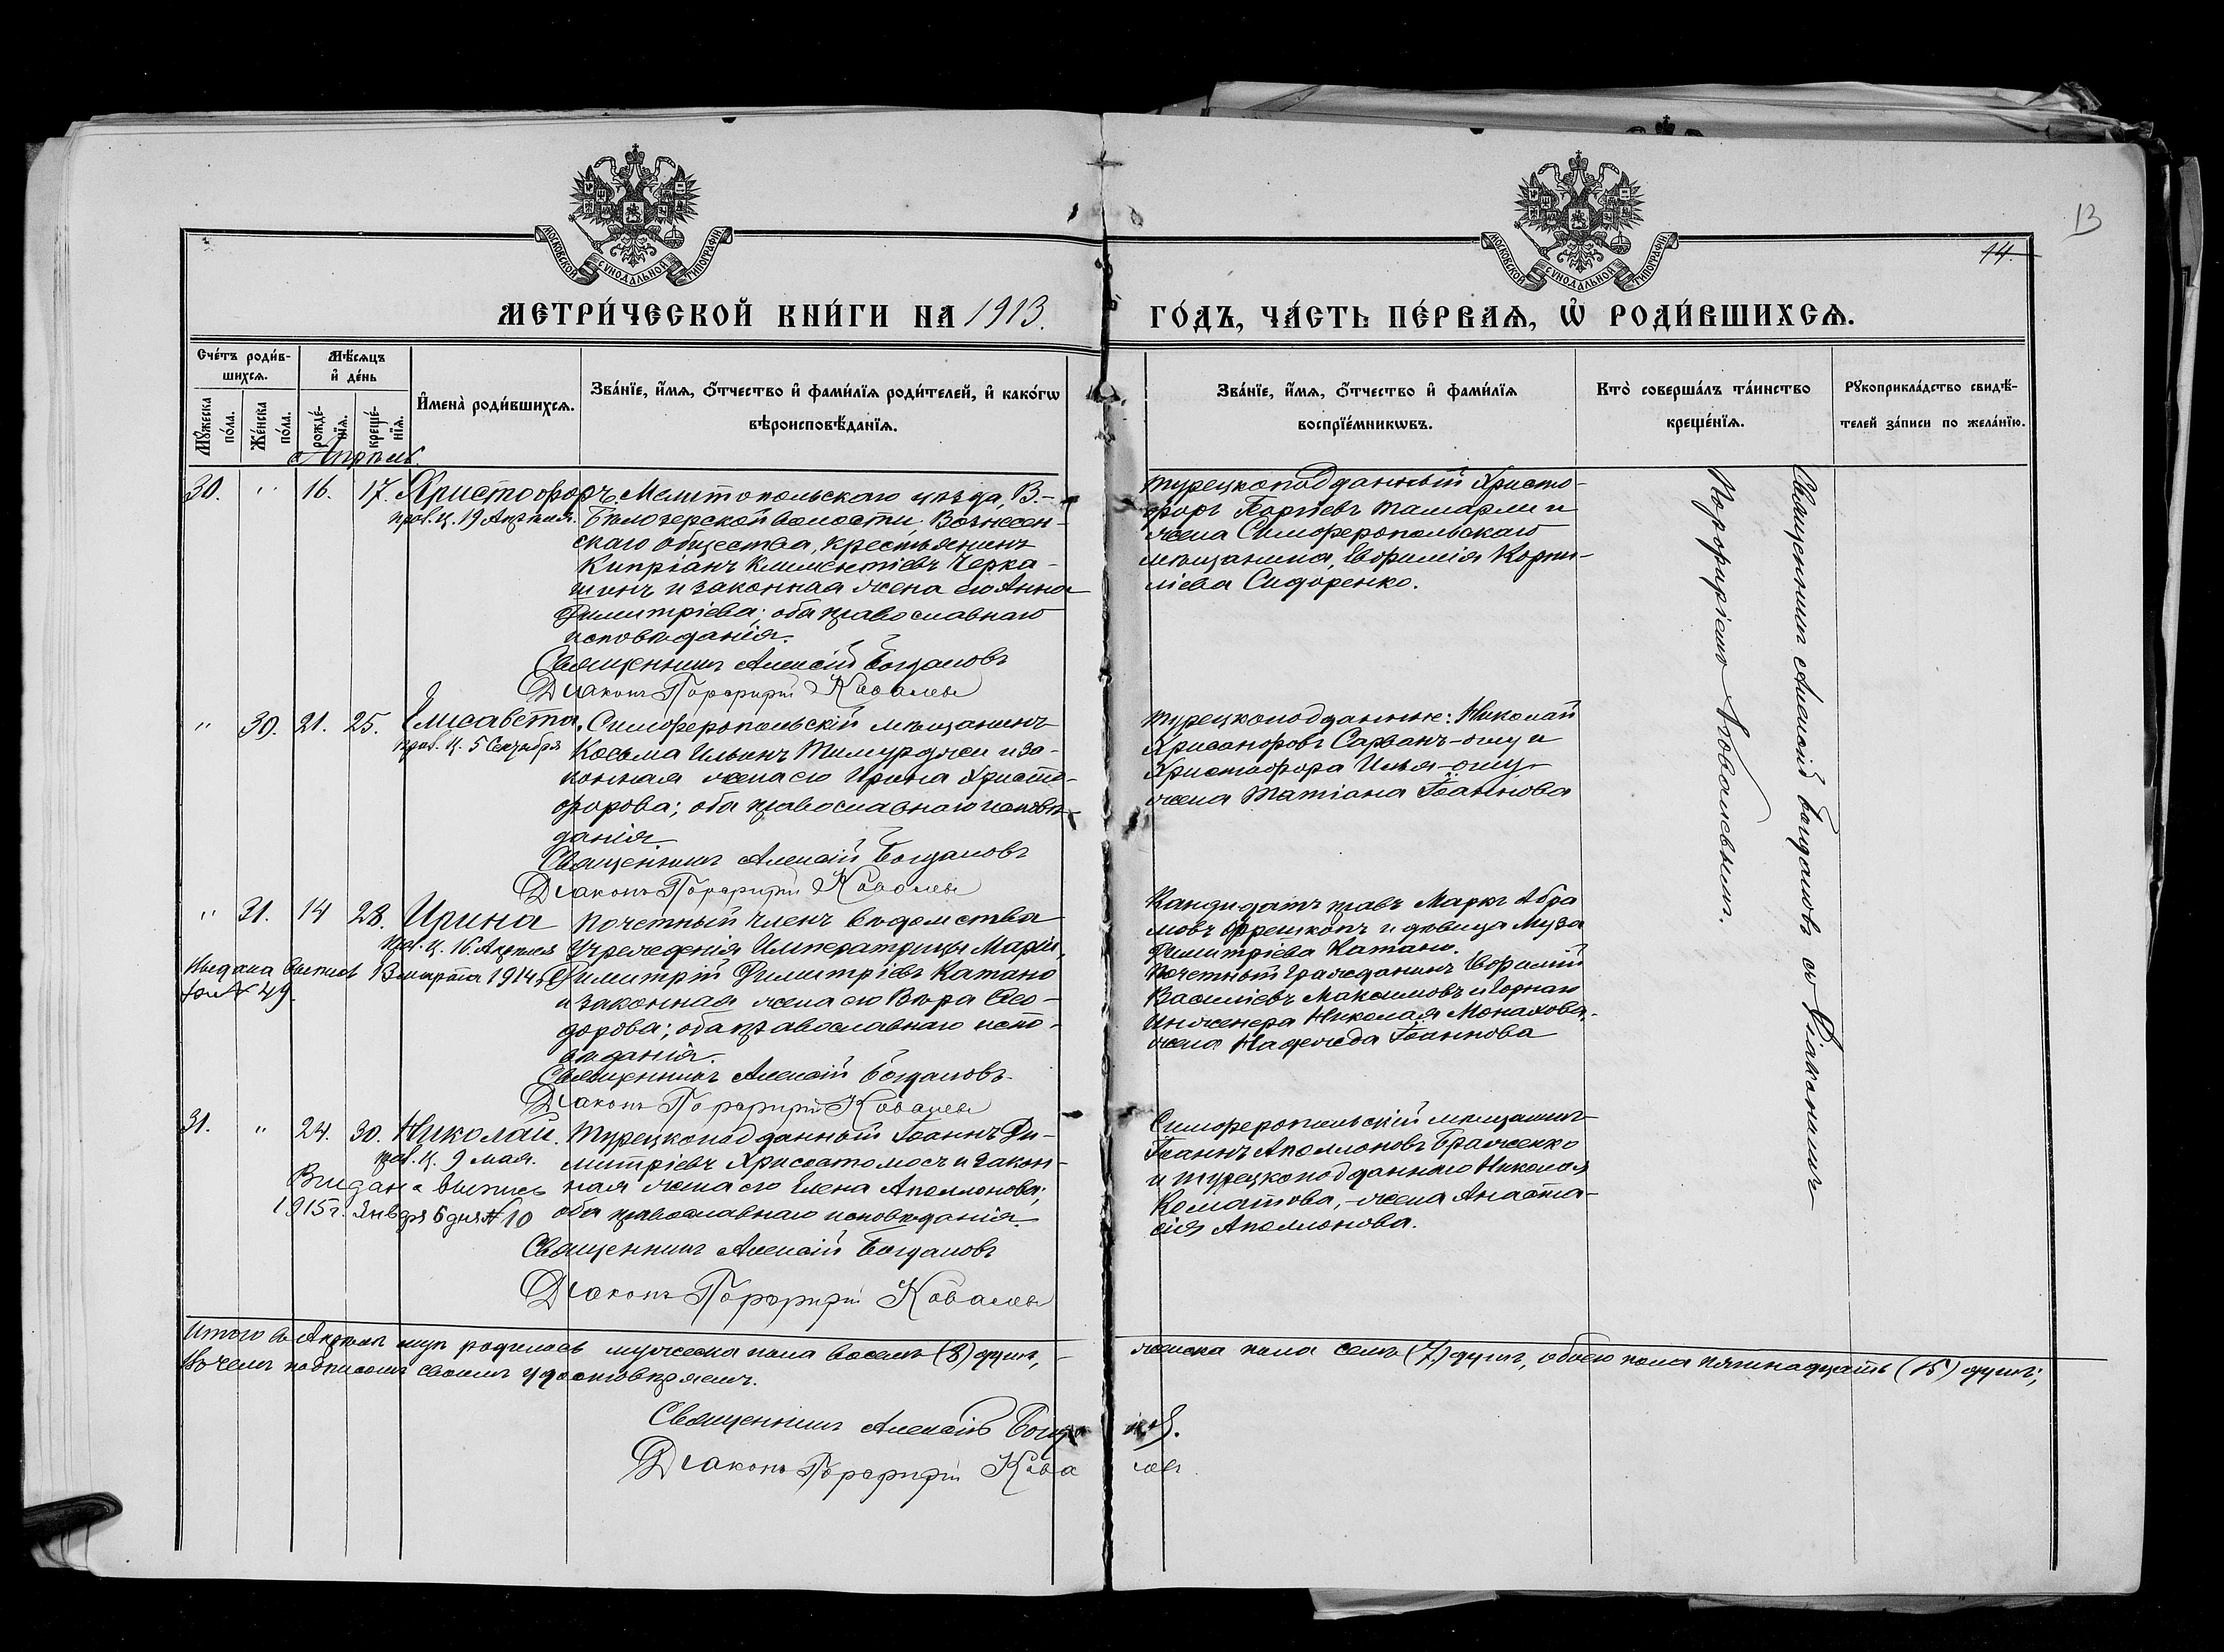 13
14.
МОСКОВСКОЙ СѴНОДАЛЬНОЙ ТИПОГРАФІИ
МОСКОВСКОЙ СѴНОДАЛЬНОЙ ТИПОГРАФІИ
МЕТРИ́ЧЕСКОЙ КНИ́ГИ НА 1913.
ГО́ДЪ, ЧА́СТЬ ПЕ́РВАѦ, Ѡ҆ РОДИ́ВШИХСѦ.
Сче́тъ роди́в-
шихсѧ.
Мꙋ́жеска по́ла.
Же́нска по́ла.
Мѣ́сѧцъ
и҆ де́нь
рожде́-
нїѧ.
креще́-
нїѧ.
И҆мена̀ роди́вшихсѧ.
Зва́нїе, и҆́мѧ, ѻ҆́тчество и҆ фами́лїѧ роди́телей, и҆ како́гѡ
вѣроисповѣ́данїѧ.
Зва́нїе, и҆́мѧ, ѻ҆́тчество и҆ фами́лїѧ
воспрїе́мникѡвъ.
Кто̀ соверша́лъ та́инство
креще́нїѧ.
Рꙋкоприкла́дство свидѣ́-
телей за́писи по жела́нїю.
Апрѣль.
30. " 16. 17. Христофоръ
прав. ц. 19 Апрѣля.
Мелитопольскаго уѣзда, В.-
Бѣлозерской волости, Вознесен-
скаго общества, крестьянинъ
Кипріанъ Климентіевъ Черка-
шинъ и законная жена его Анна
Димитріева; оба православнаго
исповѣданія.
Священникъ Алексій Богдановъ
Діаконъ Порфирій Ковалевъ
Турецкоподданный Христо-
форъ Георгіевъ Тамарли и
жена Симферопольскаго
мѣщанина, Евфимія Корни-
ліева Сидоренко.
" 30. 21. 25. Елисавета.
прав. ц. 5 Сентября
Симферопольскій мѣщанинъ
Косьма Ильинъ Тимурджи и за-
конная жена его Ирина Христо-
форова; оба православнаго исповѣ-
данія
Священникъ Алексій Богдановъ
Діаконъ Порфирій Ковалевъ
Турецкоподданные: Николай
Хрисанфовъ Сарванъ-оглу и
Христофора Илья-оглу-
жена Татіана Іоаннова
" 31. 14 28. Ирина
прав. ц. 16 Апрѣля
Выдана выпись 13 марта 1914 г.
за № 49.
Почетный членъ вѣдомства
Учрежденія Императрицы Маріи,
Димитрій Димитріевъ Катано
и законная жена его Вѣра Ѳео-
дорова; оба православнаго испо-
вѣданія.
Священникъ Алексій Богдановъ.
Діаконъ Порфирій Ковалевъ
Кандидатъ правъ Маркъ Абра
мовъ Ефремконъ и дѣвица Муза
Димитріева Катано.
Почетный гражданинъ Евфимій
Василіевъ Максимовъ и горнаго
инженера Николая Монахова,-
жена Надежда Іоаннова
31. " 24. 30. Николай.
прав. ц. 9 мая.
Выдана выпись
1915 г. Января 6 дня № 10
Турецкоподданный Іоаннъ Ди-
митріевъ Хрисостомосъ и закон-
ная жена его Елена Аполлонова;
оба православнаго исповѣданія.
Священникъ Алексій Богдановъ
Діаконъ Порфирій Ковалевъ
Симферопольскій мѣщанинъ
Іоаннъ Аполлоновъ Браженко
и турецкоподданнаго Николая
Коматова,-жена Анаста-
сія Аполлонова.
Священникъ Алексій Богдановъ съ Діакономъ
Порфиріемъ Ковалевымъ.
Итого въ Апрѣлѣ м-цѣ родилось мужеска пола восемь (8) душъ,
женска пола семь (7) душъ, обоего пола пятнадцать (15) душъ;
въ чемъ подписомъ своимъ удостовѣряемъ.
Священникъ Алексій Богдановъ.
Діаконъ Порфирій Ковалевъ.